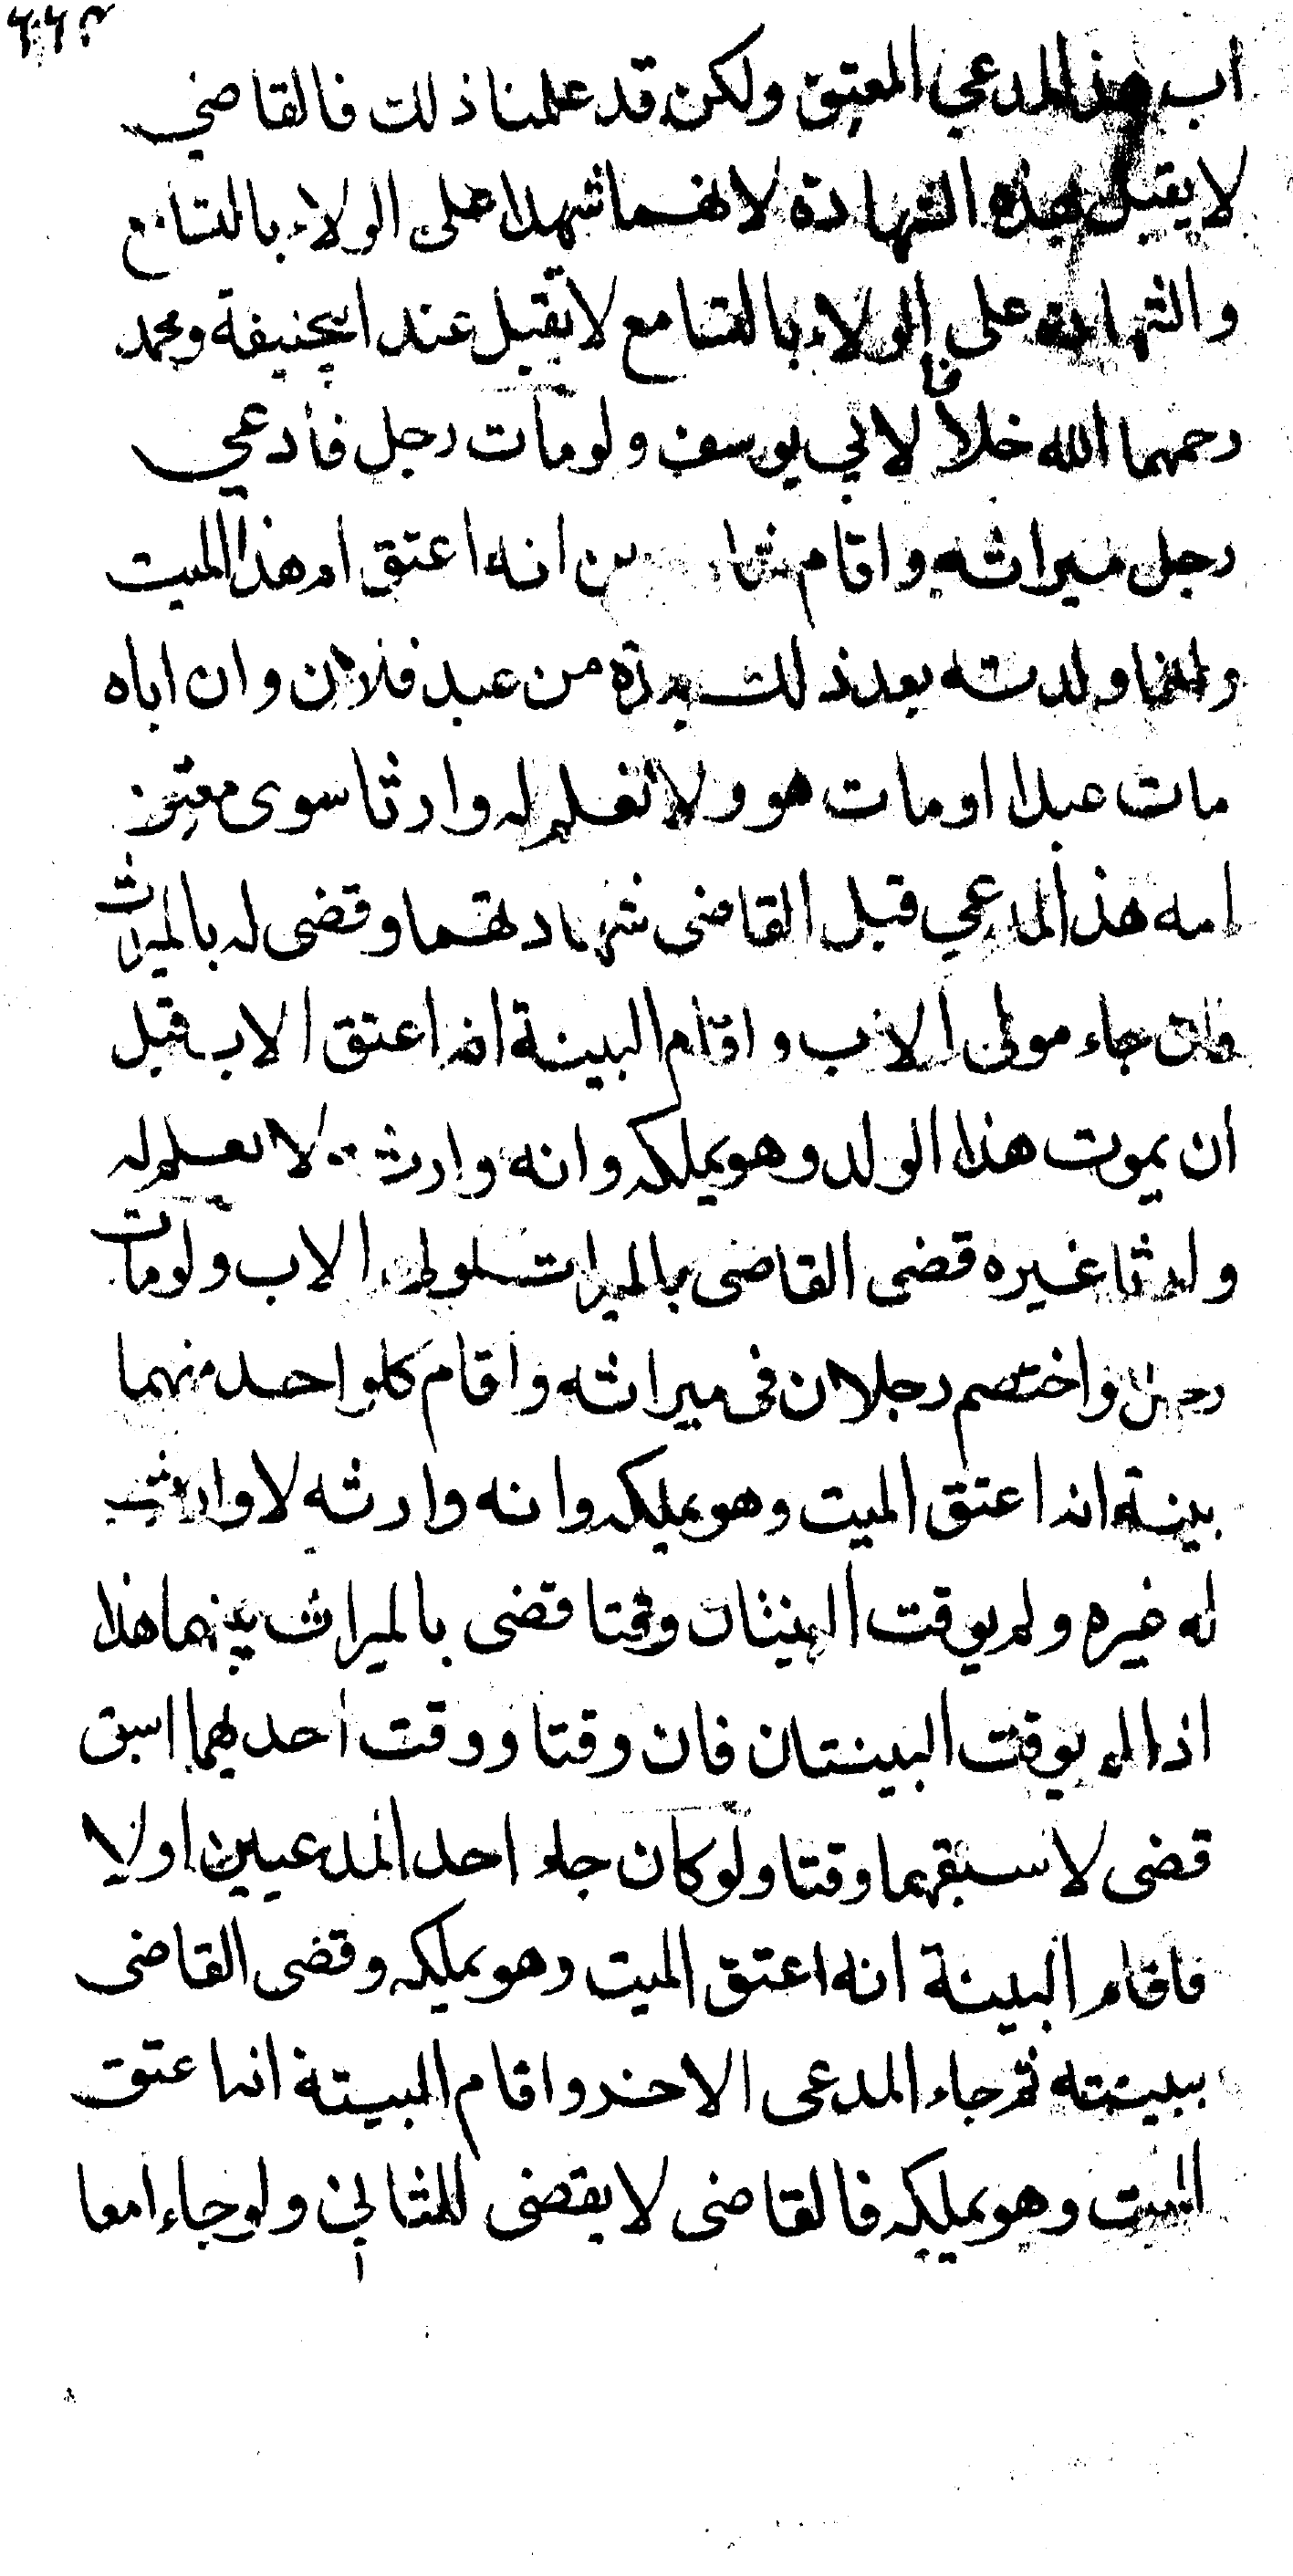 اب هذا المدعي المعتق ولكن قد علمنا ذلك فالقاضي
لا يقبل هذه الشهادة لانهما شهدا على الولاء بالتسامع
والشهادة على الولاء بالتسامع لا تقبل عند ابيحنيفة ومحمد
رحمهما الله خلافا لابي يوسف ولو مات رجل فادعى
رجل ميراثه واقام انه اعتق ام هذا الميت
وانها ولدته بعد ذلك بمدة من عبد فلان وان اباه
مات عبدا او مات هو ولا نعلم له وارثا سوى معتق
امه هذا المدعي قبل القاضي شهادتهما وقضى له بالميراث
فان جاء مولى الاب واقام البينة انه اعتق الاب قبل
ان يموت هذا الولد وهو يملكه وانه وارثه لا نعلم له
وارثا غيره قضى القاضي بالميراث لمولى الاب ولو مات
رجل واختصم رجلان في ميراثه واقام كلواحد منهما
بينة انه اعتق الميت وهو يملكه وانه وارثه لا وارث
له غيره ولم يوقت البينتان وقتا قضى بالميراث بينهما هذا
اذا لم يوقت البينتان فان وقتا ووقت احديهما اسبق
قضى لاسبقهما وقتا ولو كان جاء احد المدعيين اولا
فاقام البينة انه اعتق الميت وهو يملكه وقضى القاضى
ببينته ثم جاء المدعى الاخر واقام البينة انه اعتق
الميت وهو يملكه فالقاضى لا يقضى للثاني ولو جاء امعا